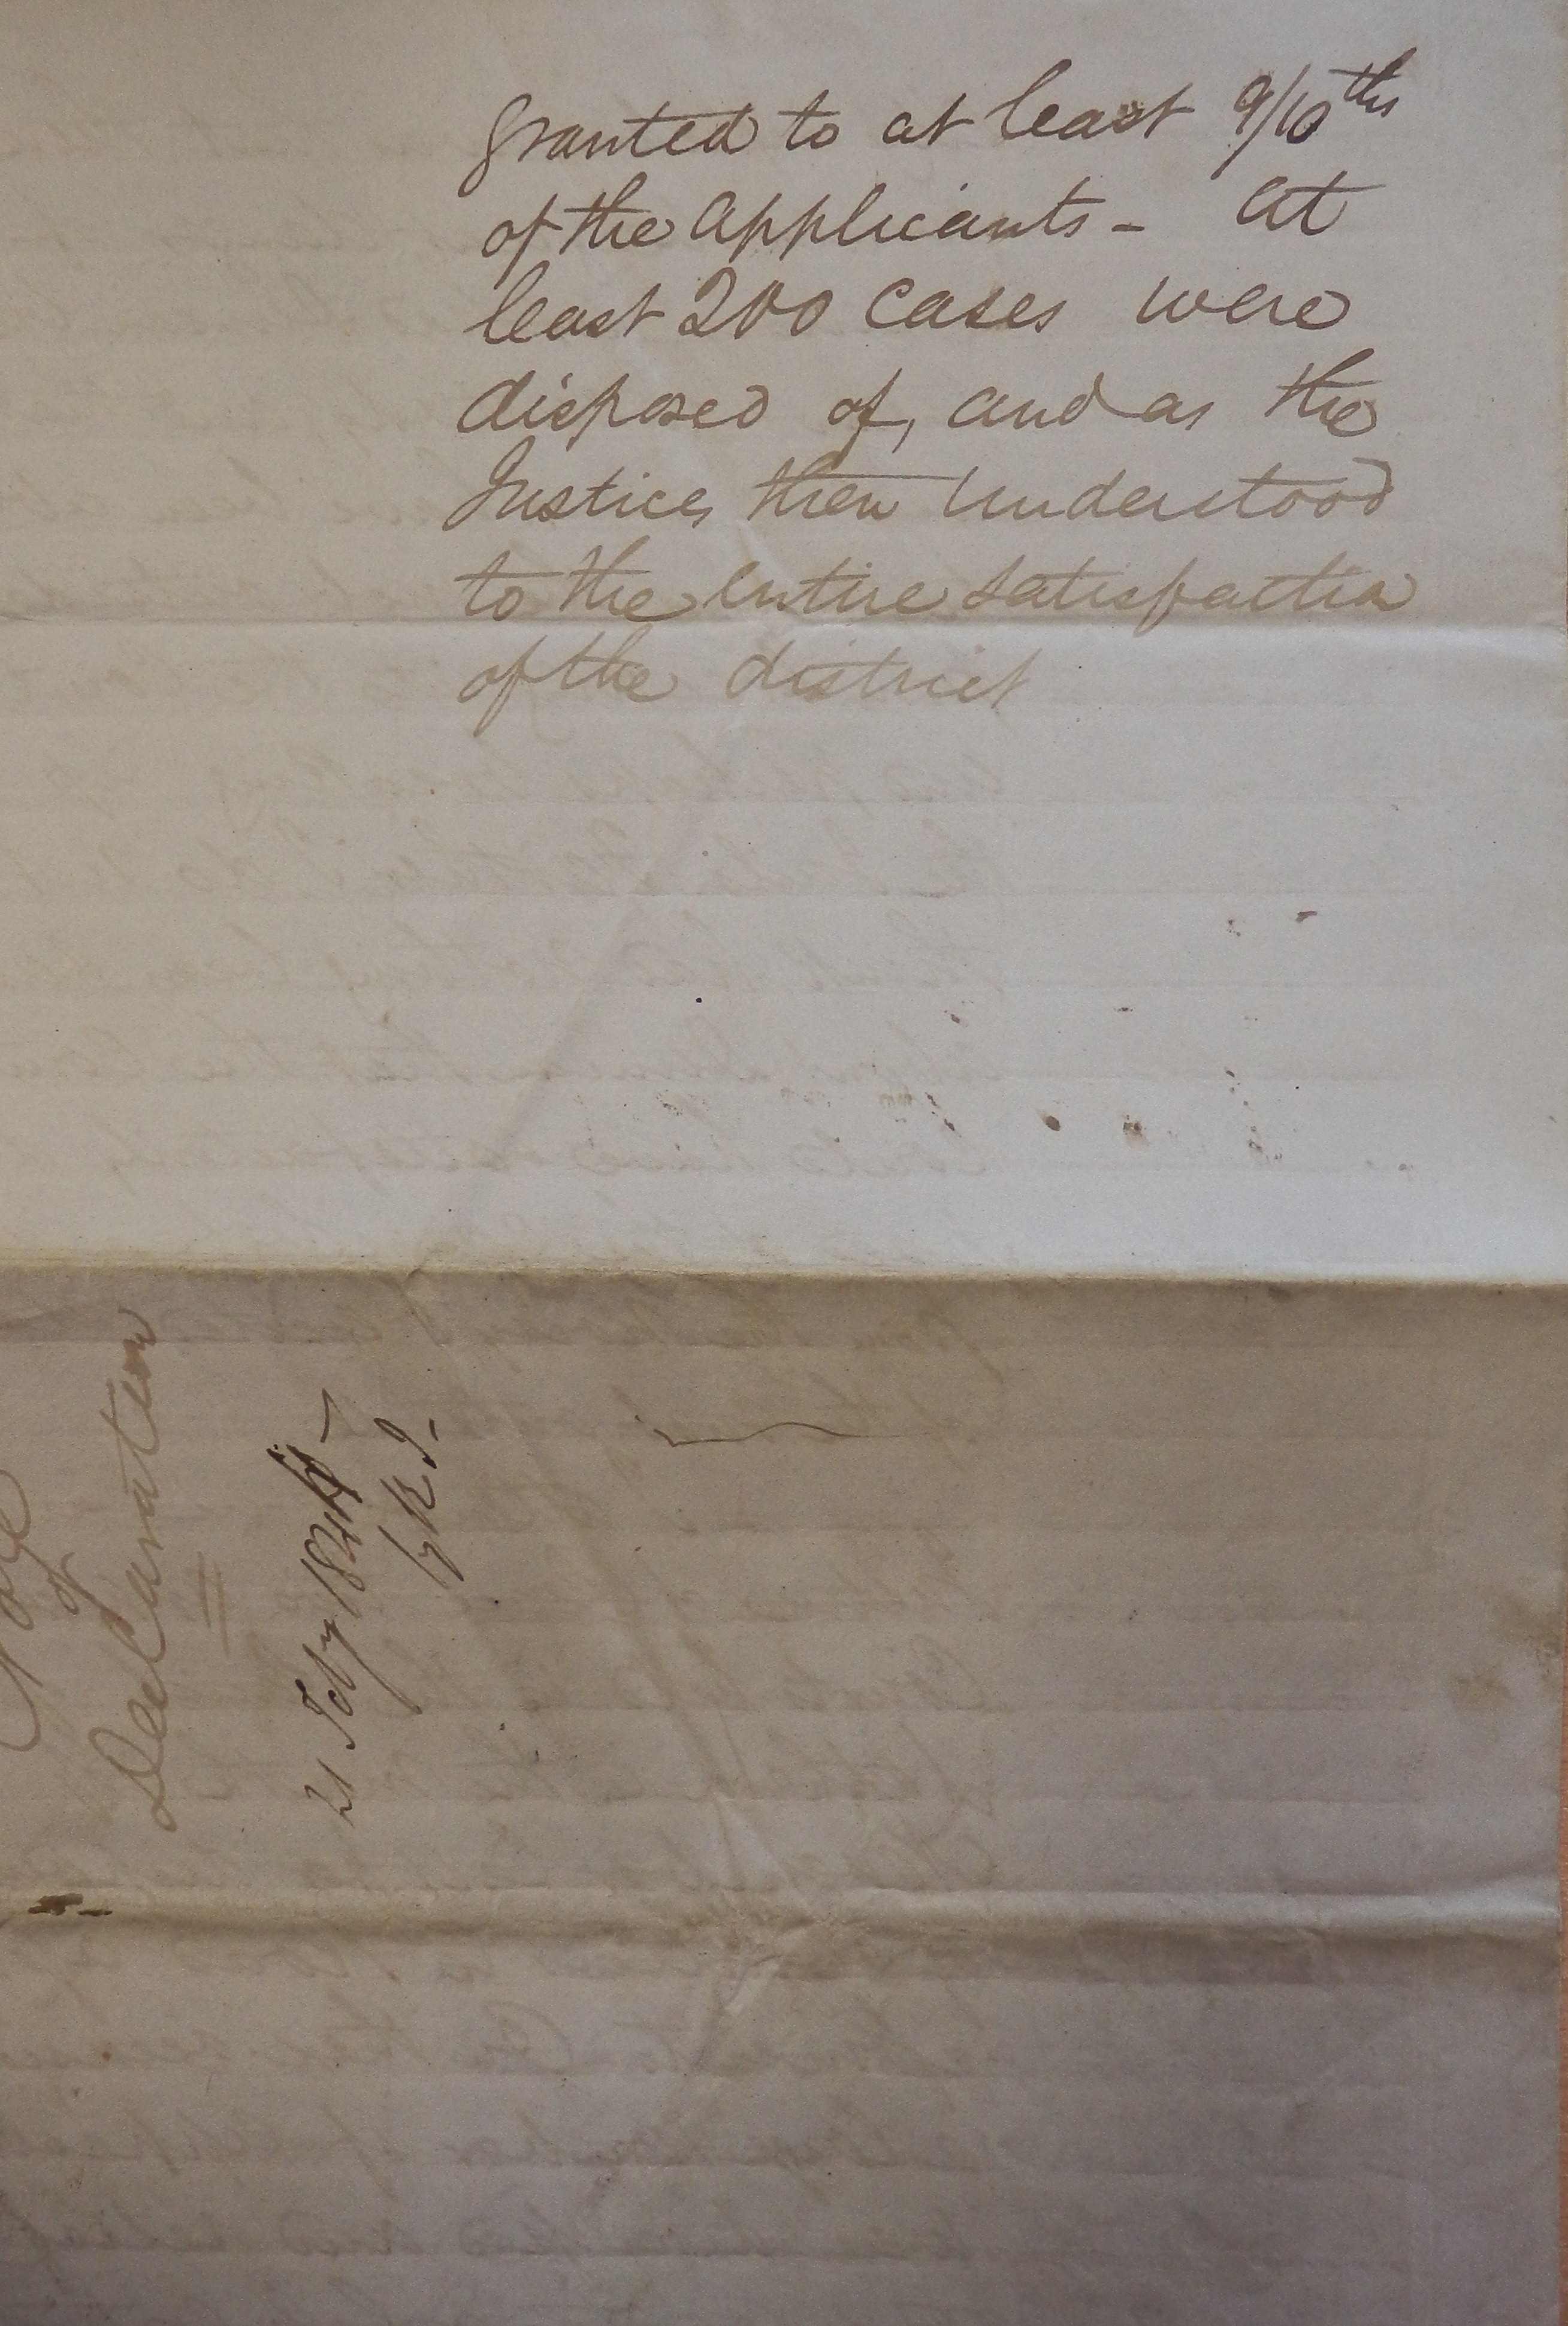 granted to at least 9/10ths
of the applicants - at
least 200 cases were
disposed of, and as the
Justices then understood
to the entire satisfaction
of the district
of
Declaration
21 Feby